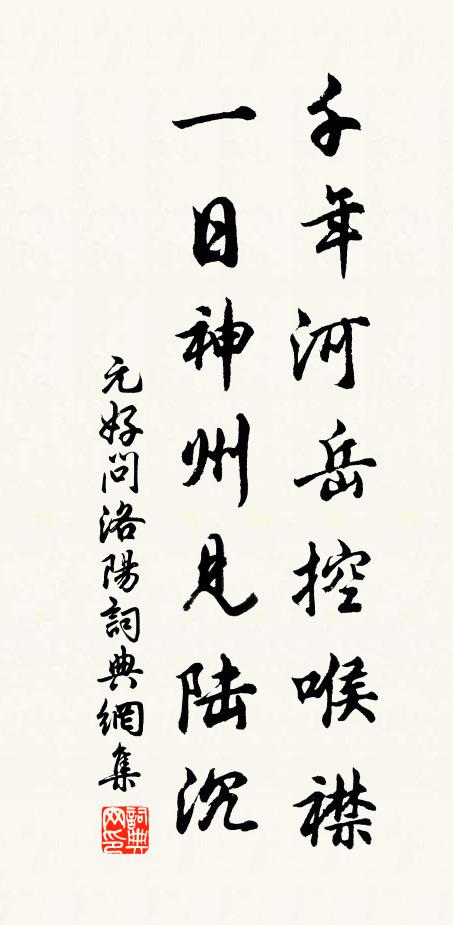 千年河岳控喉襟
一日神州见陆沉
元好問洛陽詞典網集
詞典网印